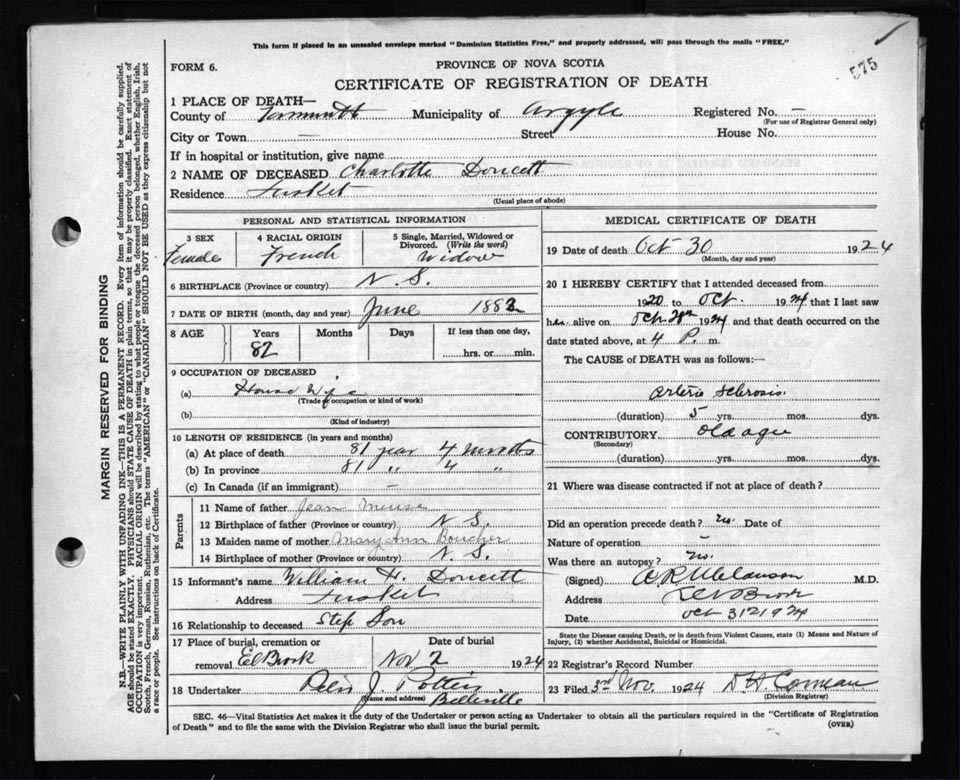 This form if placed in an unsealed envelope marked "Dominion Statistics Free," and properly addressed, will pass through the mails "FREE."
575
FORM 6.
PROVINCE OF NOVA SCOTIA
CERTIFICATE OF REGISTRATION OF DEATH
1 PLACE OF DEATH—
County of Yarmouth Municipality of Argyle Registered No. –
(For use of Registrar General only)
City or Town — Street House No.
If in hospital or institution, give name
2 NAME OF DECEASED Charlotte Doucett
Residence Tusket
(Usual place of abode)
PERSONAL AND STATISTICAL INFORMATION
3 SEX 4 RACIAL ORIGIN 5 Single, Married, Widowed or Divorced. (Write the word)
Female French Widow
6 BIRTHPLACE (Province or country) N.S.
7 DATE OF BIRTH (month, day and year) June 1882
8 AGE Years Months Days If less than one day,
82 hrs. or min.
9 OCCUPATION OF DECEASED
(a) House Wife
(Trade occupation or kind of work)
(b)
(Kind of industry)
10 LENGTH OF RESIDENCE (in years and months)
(a) At place of death 81 year 4 Months
(b) In province 81 " 4 "
(c) In Canada (if an immigrant) –
Parents
11 Name of father Jean Meuse
12 Birthplace of father (Province or country) N.S.
13 Maiden name of mother Mary Ann Boucher
14 Birthplace of mother (Province or country) N.S.
15 Informant's name William H. Doucett
Address Tusket
16 Relationship to deceased Step Son
17 Place of burial, cremation or removal Date of burial
El Brook Nov 2 1924
18 Undertaker J. Pottier
(Name and address) Belleville
MEDICAL CERTIFICATE OF DEATH
19 Date of death Oct 30 1924
(Month, day and year)
20 I HEREBY CERTIFY that I attended deceased from
1920 to Oct. 1924 that I last saw
her alive on Oct 1924 and that death occurred on the
date stated above, at 4 P. m.
The CAUSE of DEATH was as follows:
Arterio Sclerosis.
(duration) 5 yrs. mos. dys.
CONTRIBUTORY Old age
(Secondary)
(duration) yrs. mos. dys.
21 Where was disease contracted if not at place of death?
Did an operation precede death? no. Date of
Nature of operation –
Was there an autopsy? no.
(Signed) M.D.
Address
Date Oct 31 21924
State the Disease causing Death, or in death from Violent Causes, state (1) Means and Nature of Injury, (2) whether Accidental, Suicidal or Homicidal.
22 Registrar's Record Number
23 Filed 3rd Nov. 1924 Comeau
(Division Registrar)
SEC. 46—Vital Statistics Act makes it the duty of the Undertaker or person acting as Undertaker to obtain all the particulars required in the "Certificate of Registration
of Death" and to file the same with the Division Registrar who shall issue the burial permit.
(OVER)
MARGIN RESERVED FOR BINDING
N.B.—WRITE PLAINLY WITH UNFADING INK—THIS IS A PERMANENT RECORD. Every item of information should be carefully supplied.
AGE should be stated EXACTLY. PHYSICIANS should STATE CAUSE OF DEATH in plain terms, so that it may be properly classified. Exact statement of
OCCUPATION is very important. RACIAL ORIGIN will be described by stating to what people or tongue the deceased person belonged, whether English, Irish,
Scotch, French, German, Russian, Ruthenian, etc. The terms "AMERICAN" or "CANADIAN" SHOULD NOT BE USED as they express citizenship but not
a race or people. See instructions on back of Certificate.